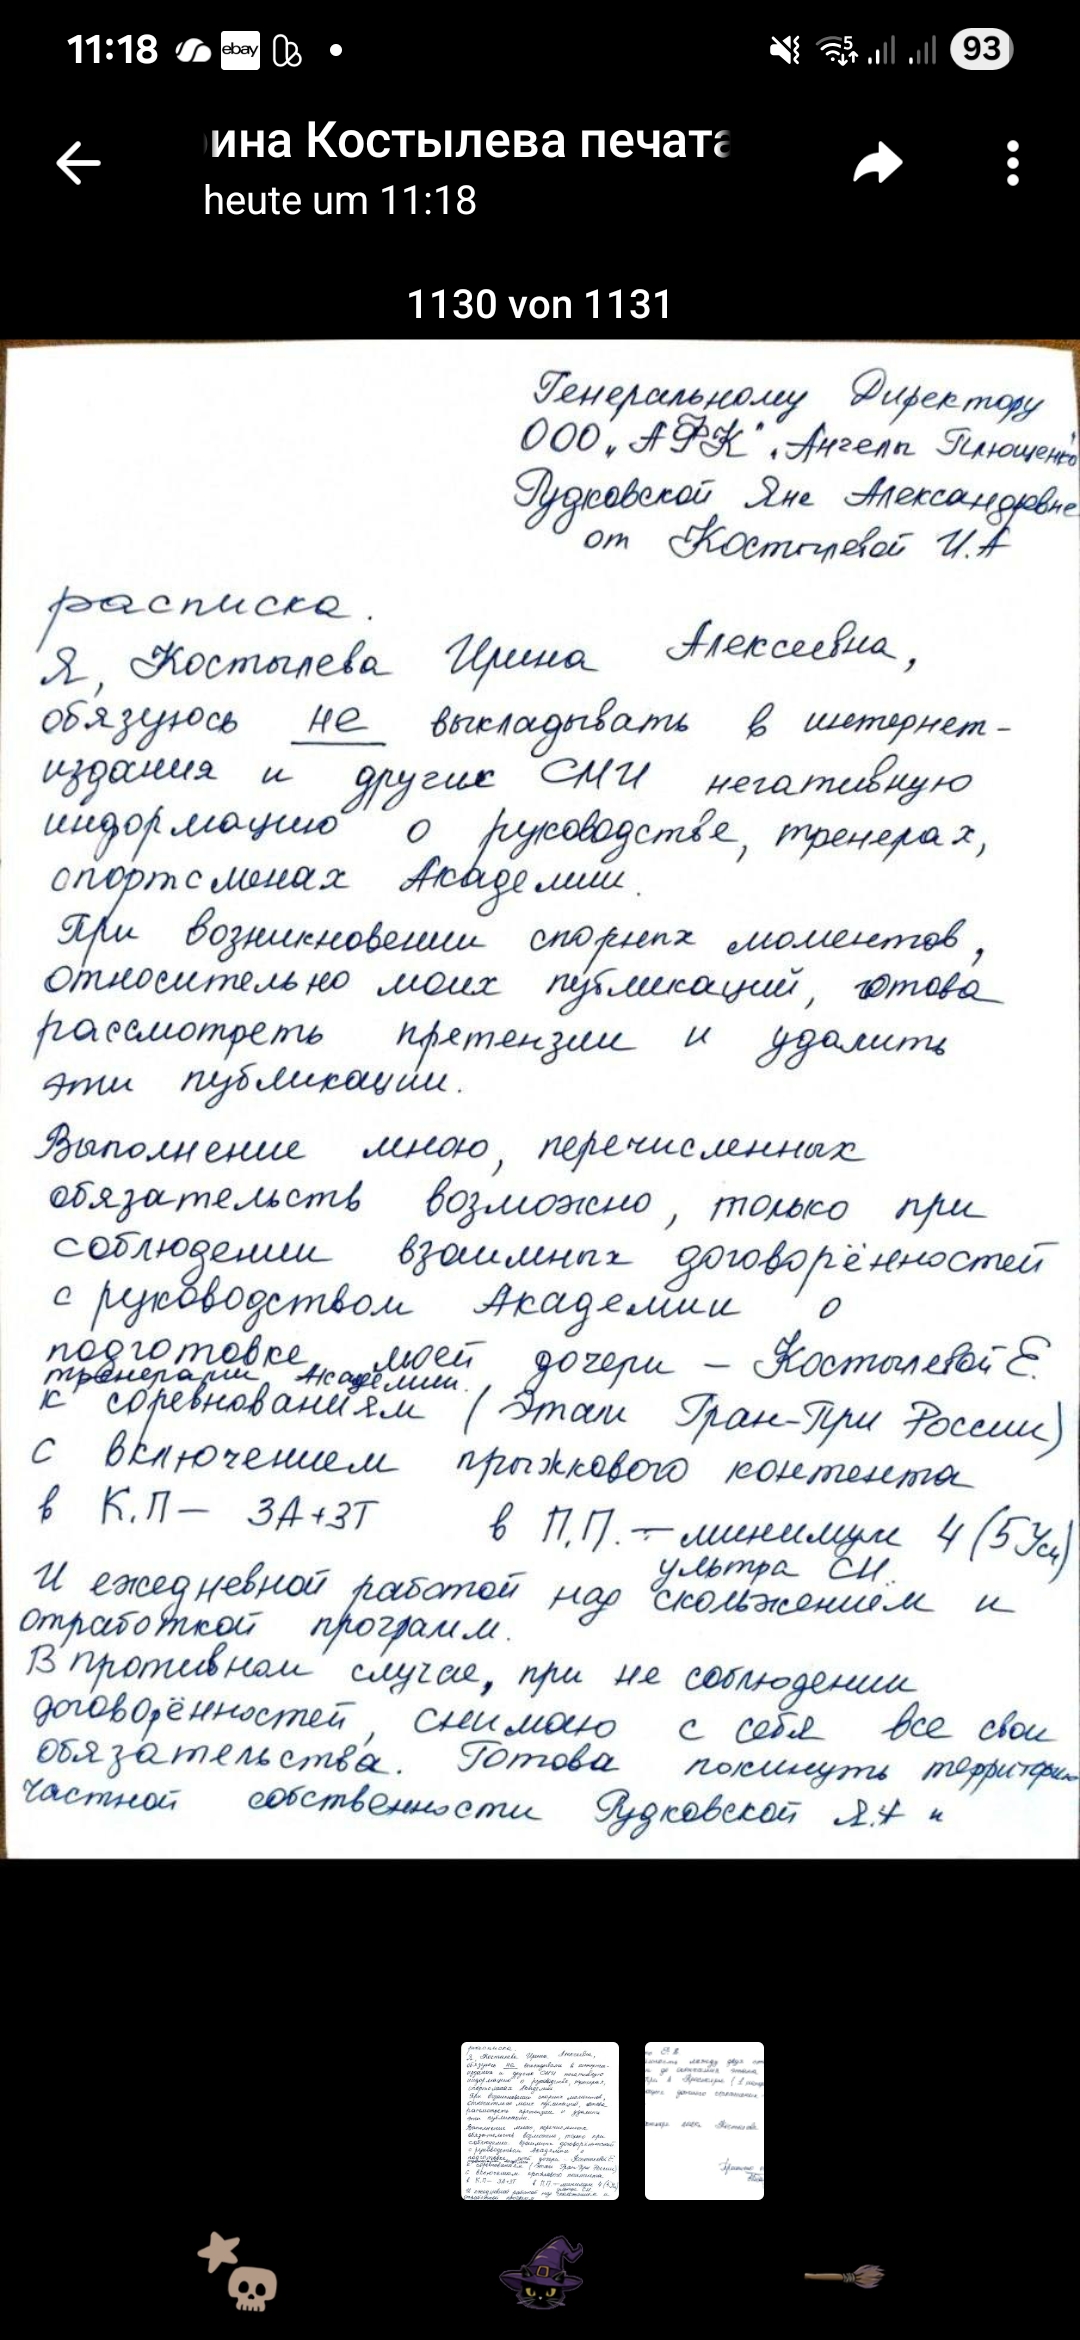 11:18 ebay 5 93
ина Костылева печата
heute um 11:18
1130 von 1131
Генеральному Директору
ООО „АФК" „Ангелы Плющенко"
Рудковской Яне Александровне
от Костылевой И.А
расписка.
Я, Костылева Ирина Алексеевна,
обязуюсь не выкладывать в интернет-
издания и других СМИ негативную
информацию о руководстве, тренерах,
спортсменах Академии.
При возникновении спорных моментов,
относительно моих публикаций, готова
рассмотреть претензии и удалить
эти публикации.
Выполнение мною, перечисленных
обязательств возможно, только при
соблюдении взаимных договорённостей
с руководством Академии о
подготовке моей дочери – Костылевой Е.
тренерами Академии.
к соревнованиям (Этап Гран-При России)
с включением прыжкового контента
в К.П – 3А+3Т в П.П. – минимум 4 (5 Усл)
ультра СИ.
И ежедневной работой над скольжением и
отработкой программ.
В противном случае, при не соблюдении
договорённостей, снимаю с себя все свои
обязательства. Готова покинуть территорию
частной собственности Рудковской Я.А и